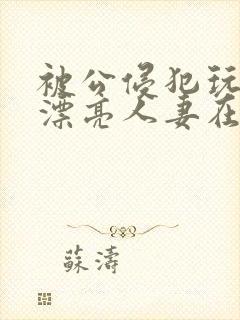 被公侵犯玩
漂亮人妻在
蘇濤